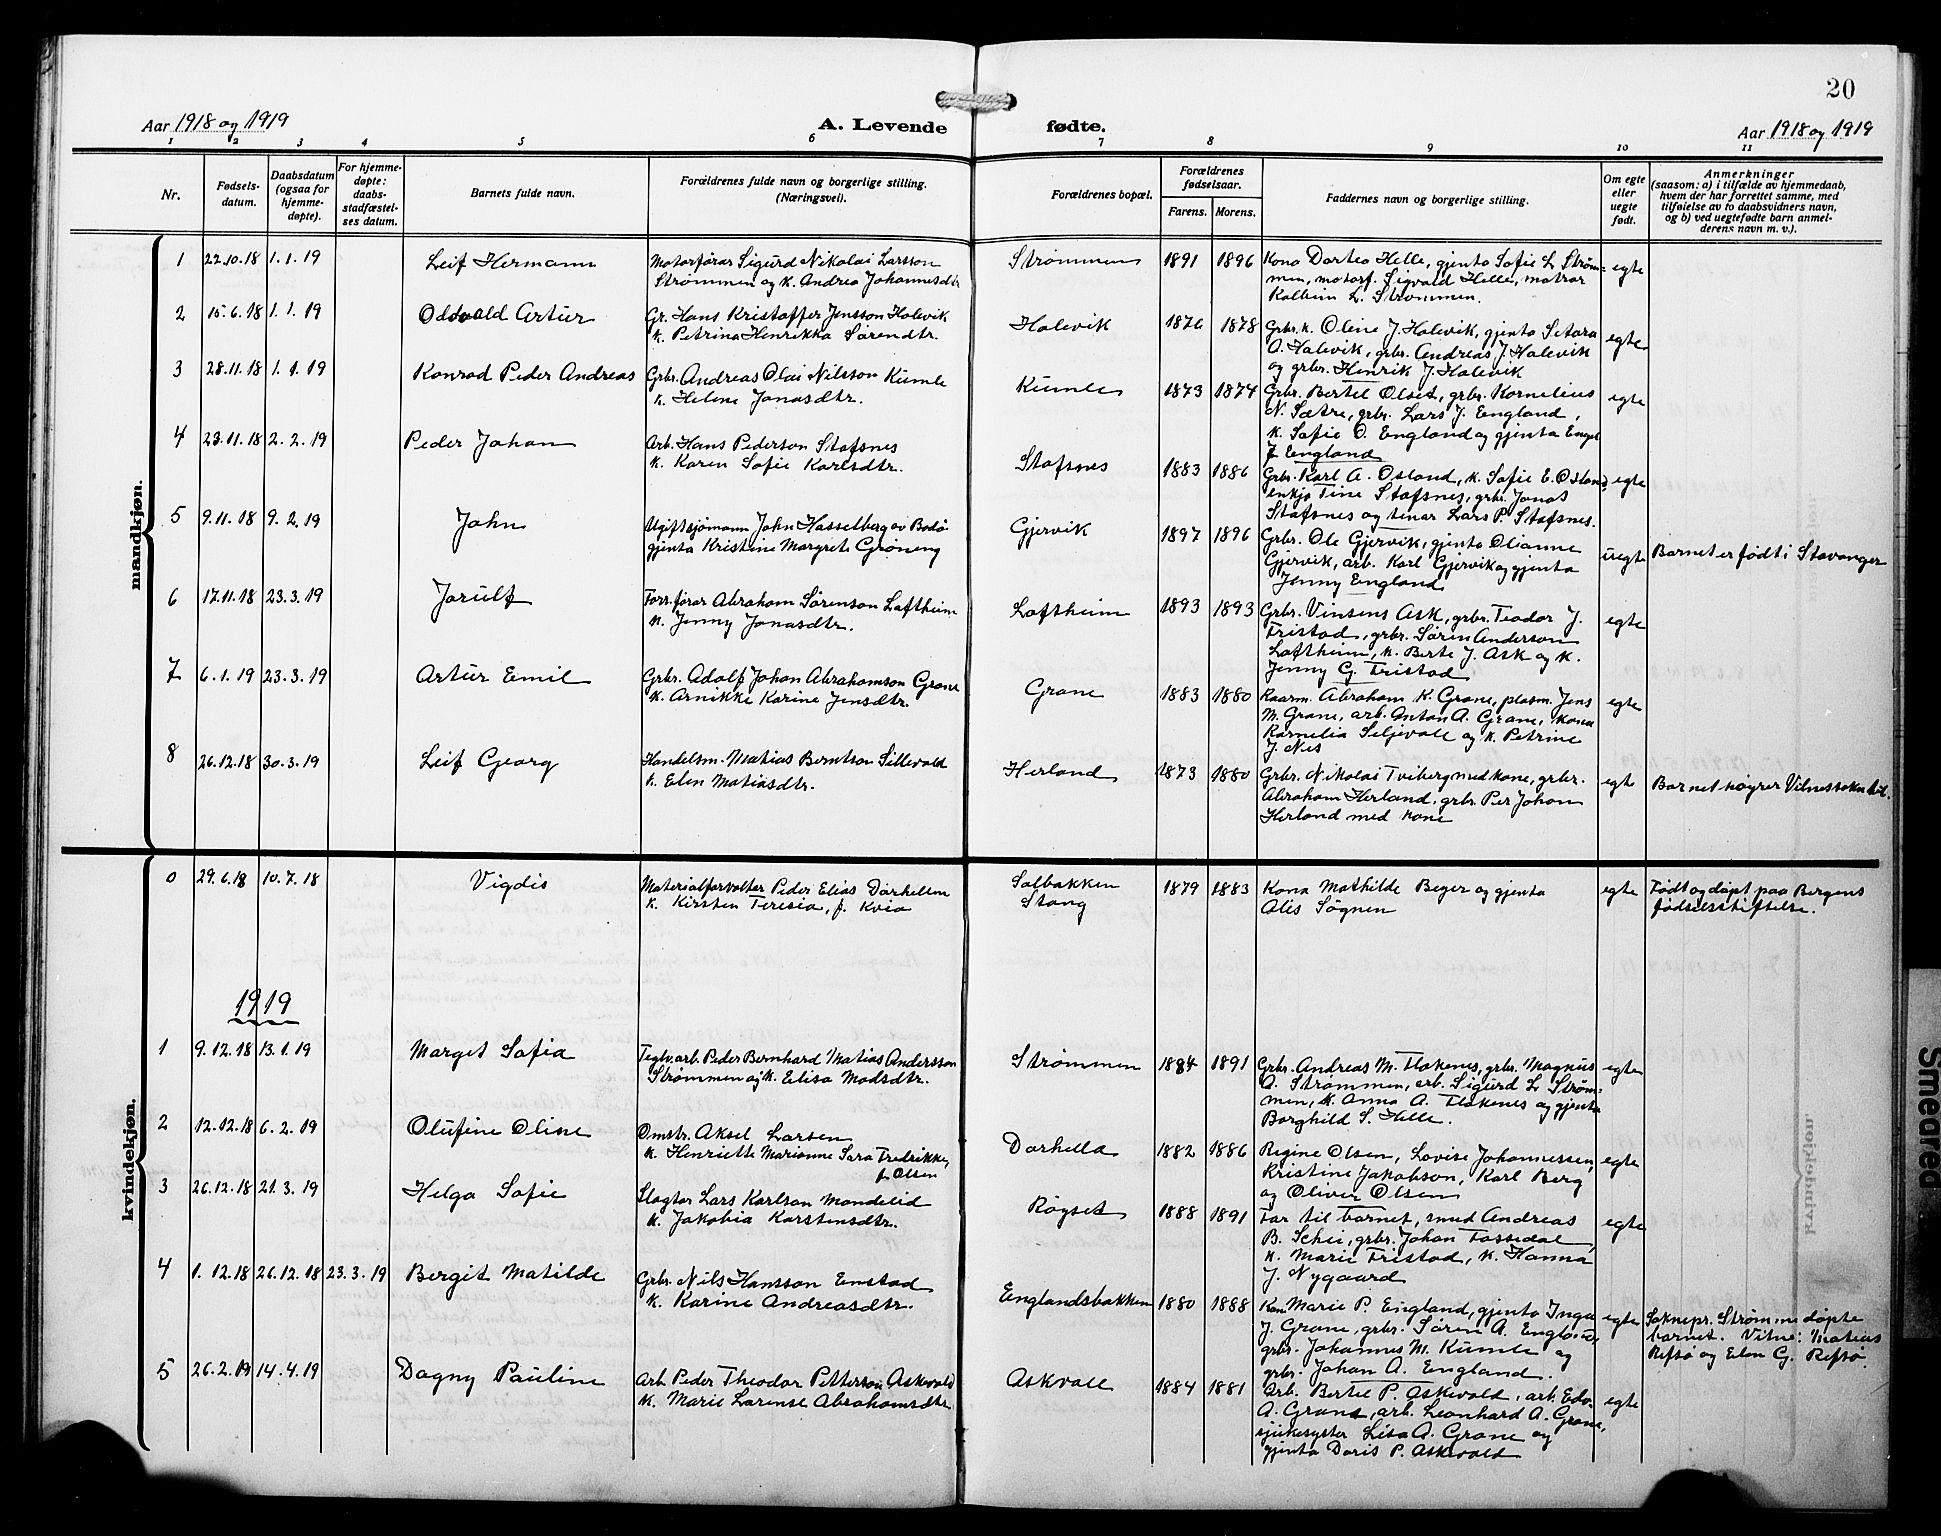 20
Aar 1918 og 1919
A. Levende fødte.
Aar 1918 og 1919
1 2 3 4 5 6 7 8 9 10 11
Nr.
Fødsels-
datum.
Daabsdatum
(ogsaa for
hjemme-
døpte).
For hjemme-
døpte:
daabs-
stadfæstel-
ses datum.
Barnets fulde navn.
Forældrenes fulde navn og borgerlige stilling.
(Næringsvei).
Forældrenes bopæl.
Forældrenes
fødselsaar.
Farens. Morens.
Faddernes navn og borgerlige stilling.
Om egte
eller
uegte
født.
Anmerkninger
(saasom: a) i tilfælde av hjemmedaab,
hvem der har forrettet samme, med
tilføielse av to daabsvidners navn,
og b) ved uegtefødte barn anmel-
derens navn m. v.).
mandkjøn.
1 22.10.18 1.1.19 Leif Hermann
Motorfører Sigurd Nikolai Larsson
Strømmen og k. Andrea Johannesdtr.
Strømmen 1891 1896
Kona Dortea Helle, gjenta Sofie L. Strøm-
men, motorf. Sigvald Helle, matros
Kolbein L. Strømmen.
egte
2 15.6.18 1.1.19 Odvald Artur
Gr. Hans Kristoffer Jensson Halevik
k. Petrina Henrikka Sørendtr.
Halevik 1876 1878
Grbr. k. Oline J. Halevik, gjenta Setara
O. Halevik, grbr. Andreas J. Halevik
og grbr. Henrik J. Halevik
egte
3 28.11.18 1.1.19 Konrad Peder Andreas
Grbr. Andreas Olai Nilsson Kumle
k. Helene Jonasdtr.
Kumle 1873 1874
Grbr. Bertil Olset, grbr. Kornelius
N. Sætre, grbr. Lars J. England,
k. Sofie O. England og gjenta Engel
J. England
egte
4 23.11.18 2.2.19 Peder Johan
Arb. Hans Pederson Stafsnes
k. Karen Sofie Karlsdtr.
Stafsnes 1883 1886
Grbr. Karl A. Osland, k. Sofie E. Osland,
enkja Tine Stafsnes, grbr. Jonas
Stafsnes og tenar Lars P. Stafsnes.
egte
5 9.11.18 9.2.19 John
Ugift sjømann John Hasselberg av Bodø
gjenta Kristine Margrete Grøneng
Gjervik 1897 1896
Grbr. Ole Gjervik, gjenta Olianne
Gjervik, arb. Karl Gjervik og gjenta
Jenny England
uegte
Barnet er født i Stavanger
6 17.11.18 23.3.19 Jarulf
Forr.fører Abraham Sørenson Loftheim
k. Jenny Jonasdtr.
Loftheim 1893 1893
Grbr. Vinsens Ask, grbr. Teodor J.
Fristad, grbr. Søren Anderson
Loftheim, k. Berte J. Ask og k.
Jenny G. Fristad
egte
7 6.1.19 23.3.19 Artur Emil
Grbr. Adolf Johan Abrahamson Grane
k. Arnikke Karine Jensdtr.
Grane 1883 1880
Kaarm. Abraham K. Grane, plasm. Jens
M. Grane, arb. Anton A. Grane, kona
Kornelia Seljevoll og k. Petrine
J. Nes
egte
8 26.12.18 30.3.19 Leif Georg
Handelsm. Matias Berntson Sillevold
k. Elen Matiasdtr.
Herland 1873 1880
Grbr. Nikolai Tviberg med kone, grbr.
Abraham Herland, grbr. Per Johan
Herland med kone
egte
Barnet høyrer Vilnessokn til.
kvindekjøn.
0 29.6.18 10.7.18 Vigdis
Materialforvalter Peder Elias Darhellen
k. Kirsten Teresia, f. Kvia
Solbakken
Stang
1879 1883
Kona Mathilde Beyer og gjenta
Alis Søgnen
egte
Født og døpt paa Bergens
fødselsstiftelse.
1919
1 9.12.18 13.1.19 Marget Sofia
Teglv.arb. Peder Bernhard Matias Andersson
Strømmen og k. Elisa Madsdtr.
Strømmen 1884 1891
Grbr. Andreas M. Flokenes, grbr. Magnus
A. Strømmen, arb. Sigurd L. Strøm-
men, k. Anna A. Flokenes og gjenta
Borghild S. Helle.
egte
2 12.12.18 6.2.19 Olufine Oline
Omstr. Aksel Larsen
k. Henriette Marianne Sara Fredrikke,
f. Olsen
Darhella 1882 1886
Regine Olsen, Lovise Johannessen,
Kristine Jakobson, Karl Berg
og Oliver Olsen
egte
3 26.12.18 21.3.19 Helga Sofie
Slagter Lars Karlson Mondelid
k. Jakobia Karstensdtr.
Røyset 1888 1891
Far til barnet, smed Andreas
B. Schei, grbr. Johan Fossedal,
k. Marie Fristad, k. Hanna
J. Nygaard
egte
4 1.12.18 26.12.18 23.3.19 Bergit Matilde
Grbr. Nils Hansson Enstad
k. Karine Andreasdtr.
Englandsbakken 1880 1888
Kona Marie P. England, gjenta Inga
J. Grane, grbr. Søren A. England,
grbr. Johannes M. Kumle og
grbr. Johan A. England.
egte
Soknepr. Strømme døpte
barnet. Vitne: Matias
Refsø og Elen G. Refsø.
5 26.2.19 14.4.19 Dagny Pauline
Arb. Peder Theodor Petterson Askvold
k. Marie Larense Abrahamsdtr.
Askvoll 1884 1881
Arb. Bertil P. Askvold, arb. Edv.
A. Grane, arb. Leonhard A. Grane,
sjukesyster Lisa A. Grane og
gjenta Doris P. Askvold
egte
Smeared